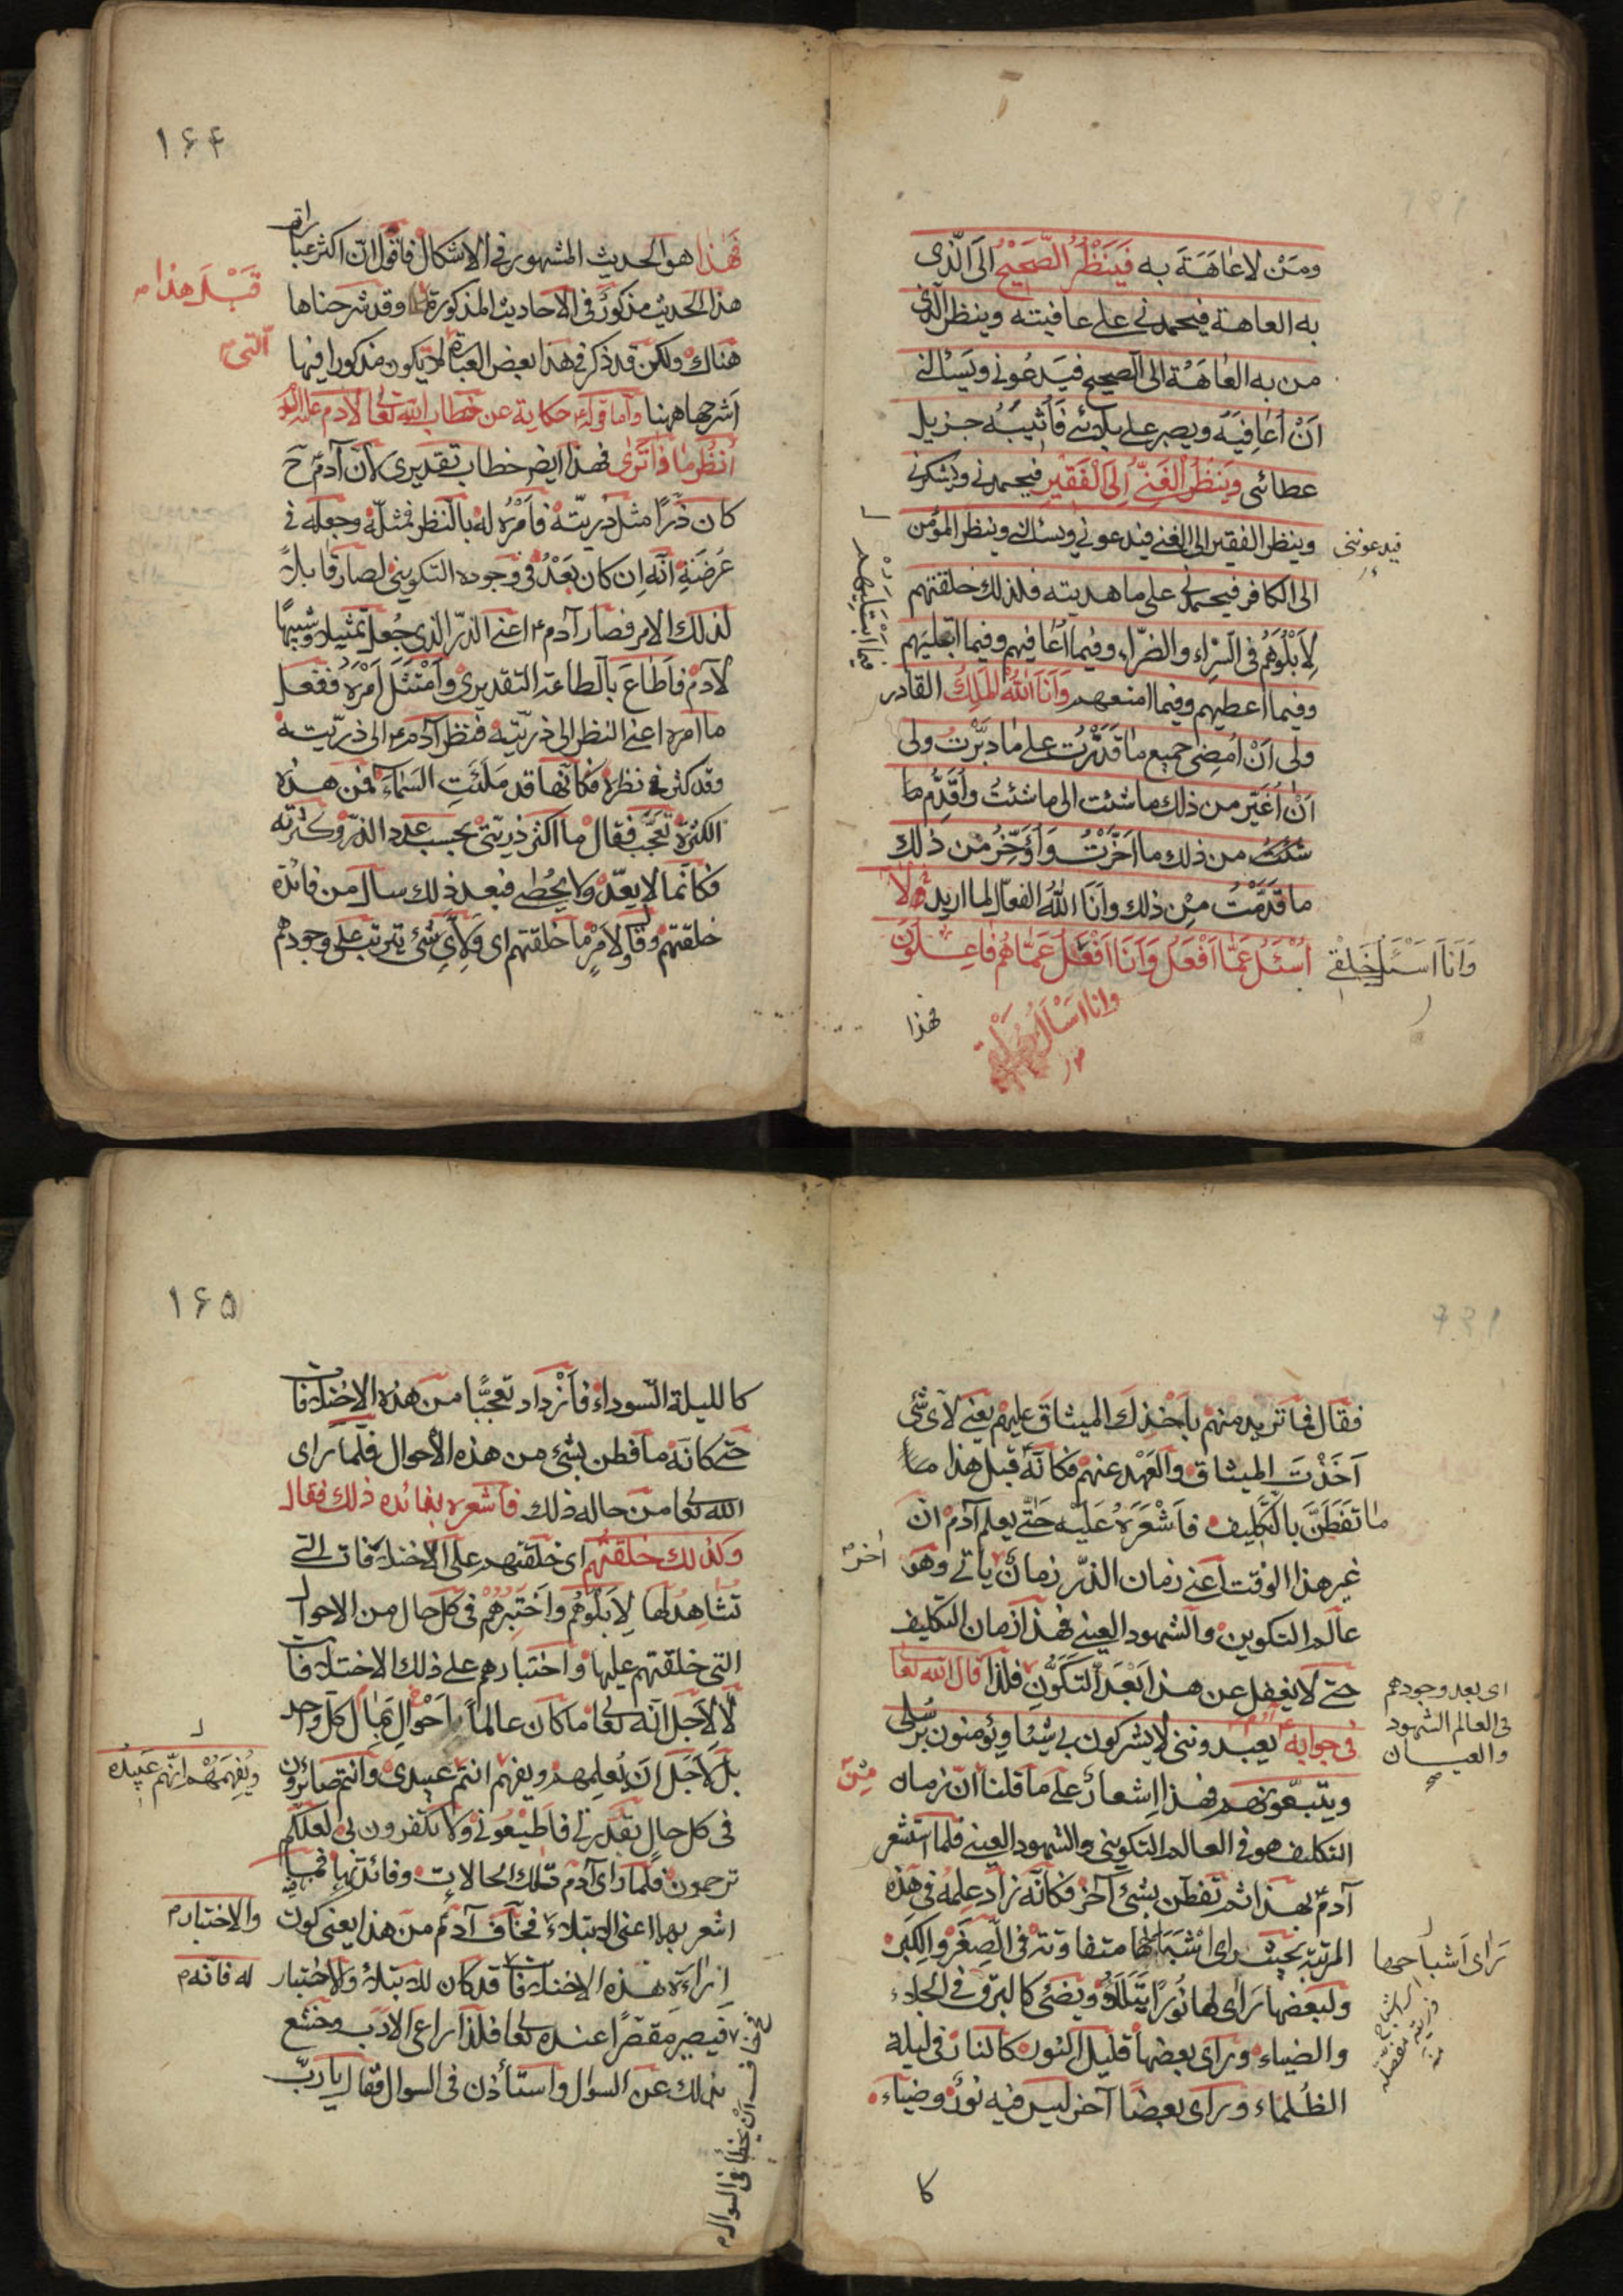 ومَنْ لا عاهَةَ به فَيَنْظُرُ الصَّحيحُ الى الّذى
به العاهة فيحمدنى على عافيته وينظر الّذى
من به العاهَة الى الصحيح فيَدعُونى ويَسئلنى
اَنْ اُعافِيَهُ ويصبر على بلائى فَاُثيبَهُ جزيل
عطائى وَيَنْظُرُ الْغَنِىُّ اِلَى الْفَقيرِ فيحمدنى ويشكرنى
وينظر الفقير الى الغنى فيدعونى ويسئلنى وينظر المؤمن
فيدعوننى
الى الكافر فيحمدنى على ما هديته فلذلك خلقتهم
لِاَبْلُوَهُم فى السرّاء والضرّاء وفيما اُعافيهم وفيما ابتليهم
وفيما اعطيهم وفيما امنعهم وَاَنَا اللّٰهُ المَلِكُ القادر
ولى اَنْ اُمضِى جميع ما قَدَّرْتُ على ما دبّرْتُ ولى
اَنْ اُغَيّر من ذلك ما شئت الى ما شئتُ واُقَدِّم ما
شئتُ من ذلك ما اَخَّرْتُ وَاُؤَخِّرُ مِن ذلك
ما قَدَّمْتُ مِن ذلك وانَا اللّٰهُ الفعّال لما اريد ولا
اُسْئَلُ عَمّا اَفْعَلُ وَاَنَا اَفْعَلُ عَمّا هُم فاعِلُونَ
وَاَنَا اَسْئَلُ خَلْقى
وانا اسْأَلُ
فهذا
۱۶۴
فَهٰذا هو الحديث المشهور فى الاشكال فاقول انّ اكثر عباراته
هذا الحديث مذكورٌ فى الاحاديث المذكورة وقد شرحناها
قَبْلَ هذا م
هناك ولكن قد ذكر فى هذا بعض العبارة لا يكون مذكورا فيها
الّتى م
اَشرحها ههنا وامّا قوله حكاية عن خطاب اللّه تعالى لآدم عليه السلام
اُنظُر ما ذا تَرٰى فهذا ايض خطاب تقديرى لانّ آدم ح
كان ذَرًّا مثل ذرّيّته فاَمْرُه له بالنظر فمثله وجعله فى
عَرضَةِ انّه اِن كان بَعْدُ فى وجوده التكوينى لصار قابلاً
لذلك الامر فصار آدم ع اعنى الذرّ الذى جُعِلَ تمثيلا وشبيهًا
لآدم فاَطاعَ بالطاعة التقديرى وَامْتَثَلَ اَمْرَهُ ففعل
ما امره اعنى النظر الى ذرّيّته فنظر آدم ع الى ذرّيّته
وقد كثر فى نظره فكانّها قد مَلَئَتِ السَماءَ فمن هذه
الكثرة تعجّب فقال ما اكثر ذرّيّتى بحسب عدد الذرّ وكثرته
فكانّما لا يعدّ ولا يحُصٰى فبعد ذلك سال من فائدة
خلقتهم وقال ولاَمْرٍ ما خلقتهم اى وَلِاَىِّ شئ يترتب على وجودهم
فقال فما تريد منهم باَخْذِك الميثاق عليهم يعنى لاىّ شئ
اَخَذْتَ الميثاق والعَهْدَ عنهم فكانّه قبل هذا ما
ما تَفَطَّنَ بالتكليف فاَشْعَرَهُ عَلَيْه حَتّى يعلم آدم انّ
غير هذا الوقت اعنى زمان الذرّ زمانٌ ياتى وهو
اخر م
عالم التكوين والشهود العينى فهذا زمان التكليف
حتى لا يغفل عن هذا بَعْدَ التَكَوُّنِ فلذا قال اللّه تعا
اى بعد وجودهم
فى العالم الشهود
والعيان
فى جوابه يعبدوننى لا يشركون بى شيئا ويؤمنون برُسُلى
ويتبّعونهم فهذا اِشعارٌ على ما قلنا انّ زمان
مِنْ
التكليف هو فى العالم التكوينى والشهود العينى فلمّا استشعر
آدم بهذا ثم تفطّن بشئ آخَرَ فكانّه زادَ عِلمُهُ فى هذه
المرتبة بحيث راى اشْبَاحَها متفاوتة فى الصِغَر والكِبَر
رَاى اَشباحها
ولبعضها رَاى لها نُورًا يَتَلَأْلَؤُ ويضئ كالبَرق فى الجلاء
والضياء وراى بعضها قليل النون كالنار فى ليلة
الظُلماء وراى بعضًا آخر ليس فيه نورٌ وضياء
كا
۱۶۵
كالليلة السوداء فاَزْداد تعجّبًا من هذه الاختلافات
حتى كانّه ما فطن بشئ من هذه الأحوال فلمّا راى
اللّه تعا من حاله ذلك فاشعره بفائده ذلك فقال
وكذلك خلقتهم اى خلقتهم على الاختلافات التى
تشاهدُها لِاَبْلُوَهُم واَخْتَبِرَهُمْ فى كلّ حال من الاحوال
التى خلقتهم عليها واختبارهم على ذلك الاختلافات
لا لاَجل انّه تعا ما كان عالماً باَحْوال مَآل كلّ واحد
بل لاَجل اَن يُعلِمهم ويفهم انتم عبيدى وانتم صائرون
ويُفَهِّمَهُمْ انّهم عَبيدُه
فى كل حالٍ بقدرتى فاطيعُونى ولا تكفرون بى لعلّكم
ترحمون فلمّا راى آدم تلك الحالات وفائدتها فبما
اشعر بها اعنى الابتلاء فخاف آدم من هذا يعنى كون
والاختبار م
اِراءَةِ هذه الاختلافات قد كان للابتلاء والاختبار
له فانّه م
فيصير مقصّرًا عنده تعا فلذا راعى الادَب وخشع
بذلك عن السؤال واستأذن فى السوال فقال يا ربّ
فخاف اَنْ يخطأ فى السوال م